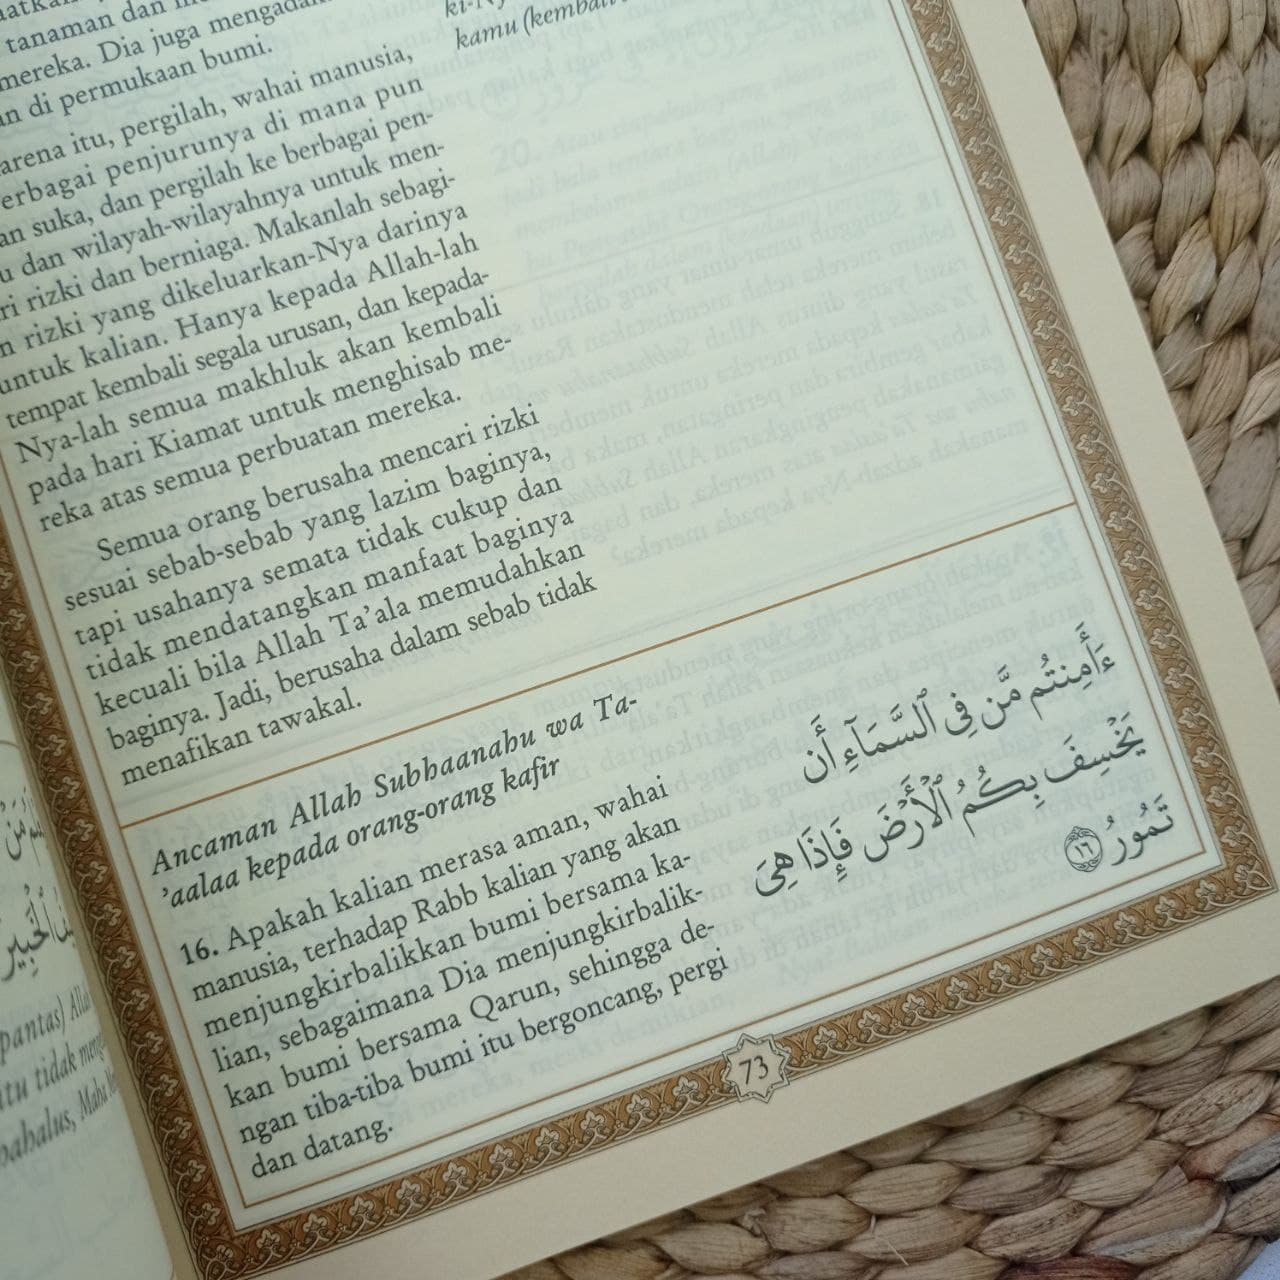 tanaman dan
mereka. Dia juga
di permukaan bumi.
itu, pergilah, wahai manusia,
penjurunya di mana pun
suka, dan pergilah ke berbagai pen-
dan wilayah-wilayahnya untuk men-
rizki dan berniaga. Makanlah sebagi-
rizki yang dikeluarkan-Nya darinya
untuk kalian. Hanya kepada Allah-lah
tempat kembali segala urusan, dan kepada-
Nya-lah semua makhluk akan kembali
pada hari Kiamat untuk menghisab me-
reka atas semua perbuatan mereka.
Semua orang berusaha mencari rizki
sesuai sebab-sebab yang lazim baginya,
tapi usahanya semata tidak cukup dan
tidak mendatangkan manfaat baginya
kecuali bila Allah Ta’ala memudahkan
baginya. Jadi, berusaha dalam sebab tidak
menafikan tawakal.
kamu (kembali
Ancaman Allah Subhaanahu wa Ta-
’aalaa kepada orang-orang kafir
16. Apakah kalian merasa aman, wahai
manusia, terhadap Rabb kalian yang akan
menjungkirbalikkan bumi bersama ka-
lian, sebagaimana Dia menjungkirbalik-
kan bumi bersama Qarun, sehingga de-
ngan tiba-tiba bumi itu bergoncang, pergi
dan datang.
ءَأَمِنتُم مَّن فِى ٱلسَّمَآءِ أَن
يَخْسِفَ بِكُمُ ٱلْأَرْضَ فَإِذَا هِىَ
تَمُورُ ١٦
73
pantas)
itu tidak